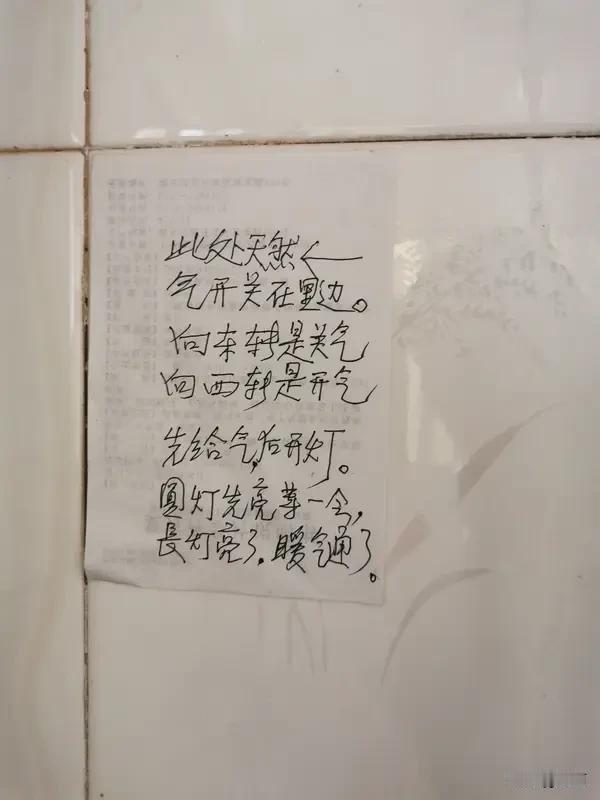 此处天然←
气开关在里边。
向东转是关气
向西转是开气
先给气,后开灯。
圆灯先亮等一会,
長灯亮了,暖气通了。